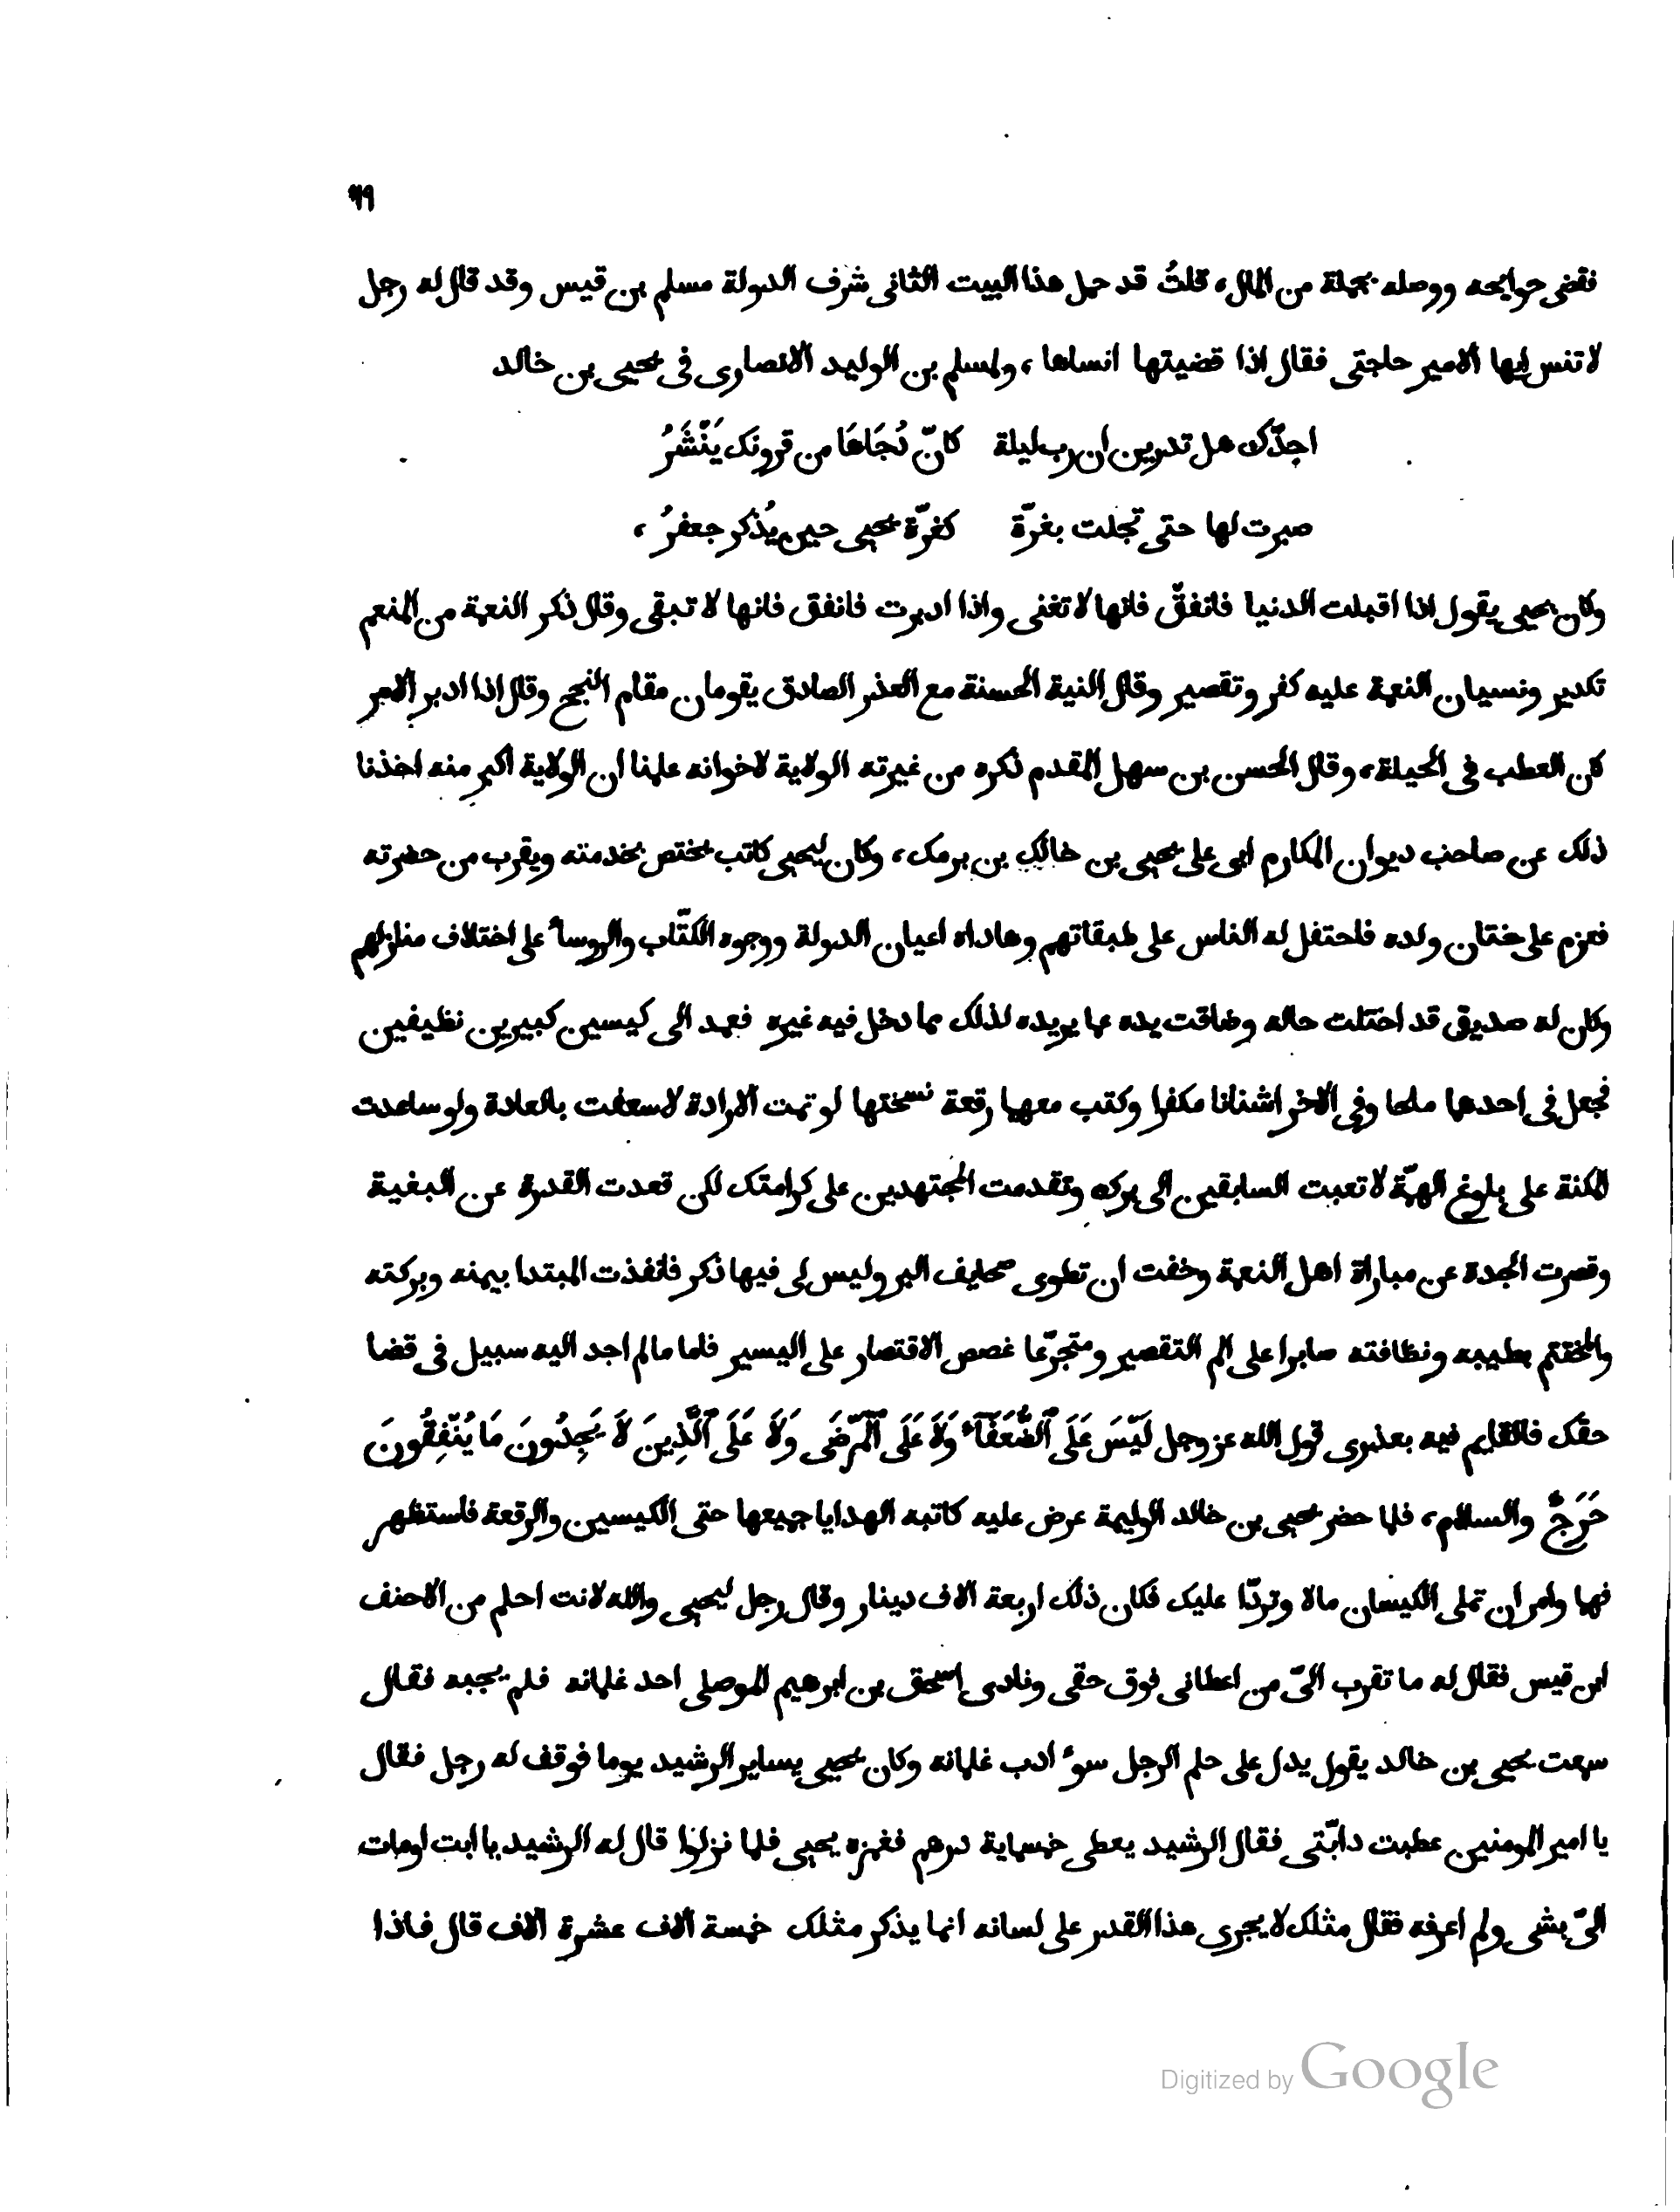 ٩٩
فقضى حوايجه ووصله بجملة من المال، قلتُ قد حمل هذا البيت الثانى شرف الدولة مسلم بن قيس وقد قال له رجل
لا تنس ايها الامير حاجتى فقال اذا قضيتها انساها، ولمسلم بن الوليد الانصارى فى يحيى بن خالد
اجدّك هل تدرين ان رب ليلة كانّ دُجَاهَا من قرونك يَنْشَرُ
صبرت لها حتى تجلت بغرّة كغرّة يحيى حين يُذكر جعفرُ،
وكان يحيى يقول اذا اقبلت الدنيا فانفقْ فانها لا تفنى واذا ادبرت فانفق فانها لا تبقى وقال ذكر النعمة من المنعم
تكدير ونسيان النعمة عليه كفر وتقصير وقال النية الحسنة مع العذر الصادق يقومان مقام النجح وقال اذا ادبر الامر
كان العطب فى الحيلة، وقال الحسن بن سهل المقدم ذكره من غيرته الولاية لاخوانه علمنا ان الولاية اكبر منه اخذنا
ذلك عن صاحب ديوان المكارم ابى على يحيى بن خالد بن برمك، وكان ليحيى كاتب يختص بخدمته ويقرب من حضرته
فعزم على ختان ولده فاحتفل له الناس على طبقاتهم وهاداه اعيان الدولة ووجوه الكتّاب والروسأ على اختلاف منازلهم
وكان له صديق قد اختلت حاله وضاقت يده عما يريده لذلك مما دخل فيه غيره فعمد الى كيسين كبيرين نظيفين
فجعل فى احدهما ملحا وفى الاخر اشنانا مكفرا وكتب معهما رقعة نسختها لو تمت الارادة لاسعفت بالعادة ولو ساعدت
المكنة على بلوغ الهمّة لاتعبت السابقين الى بركه وتقدمت المجتهدين على كرامتك لكن قعدت القدرة عن البغية
وقصرت الجدة عن مباراة اهل النعمة وخفت ان تطوى صحايف البر وليس لى فيها ذكر فانفذت المبتدا بيمنه وبركته
والمختتم بطيبه ونظافته صابرا على الم التقصير ومتجرّعا غصص الاقتصار على اليسير فاما ما لم اجد اليه سبيل فى قضا
حقك فالقايم فيه بعذرى قول الله عز وجل لَيْسَ عَلَى ٱلضُّعَفَآءِ وَلَا عَلَى ٱلْمَرْضَى وَلَا عَلَى ٱلَّذِينَ لَا يَجِدُونَ مَا يُنْفِقُونَ
حَرَجٌ والسلام، فلما حضر يحيى بن خالد الوليمة عرض عليه كاتبه الهدايا جميعها حتى الكيسين والرقعة فاستظهر
فهما وامر ان تملى الكيسان مالا وتردّا عليك فكان ذلك اربعة الاف دينار وقال رجل ليحيى والله لانت احلم من الاحنف
ابن قيس فقال له ما تقرب الىّ من اعطانى فوق حقى ونادى اسحق بن ابرهيم الموصلى احد غلمانه فلم يجبه فقال
سمعت يحيى بن خالد يقول يدل على حلم الرجل سوء ادب غلمانه وكان يحيى يساير الرشيد يوما فوقف له رجل فقال
يا امير المومنين عطبت دابّتى فقال الرشيد يعطى خمسماية درهم فغمزه يحيى فلما نزلوا قال له الرشيد يا ابت اومات
الىّ بشى ولم اعرفه فقال مثلك لا يجرى هذا القدر على لسانه انما يذكر مثلك خمسة الاف عشرة الاف قال فاذا
Digitized by Google